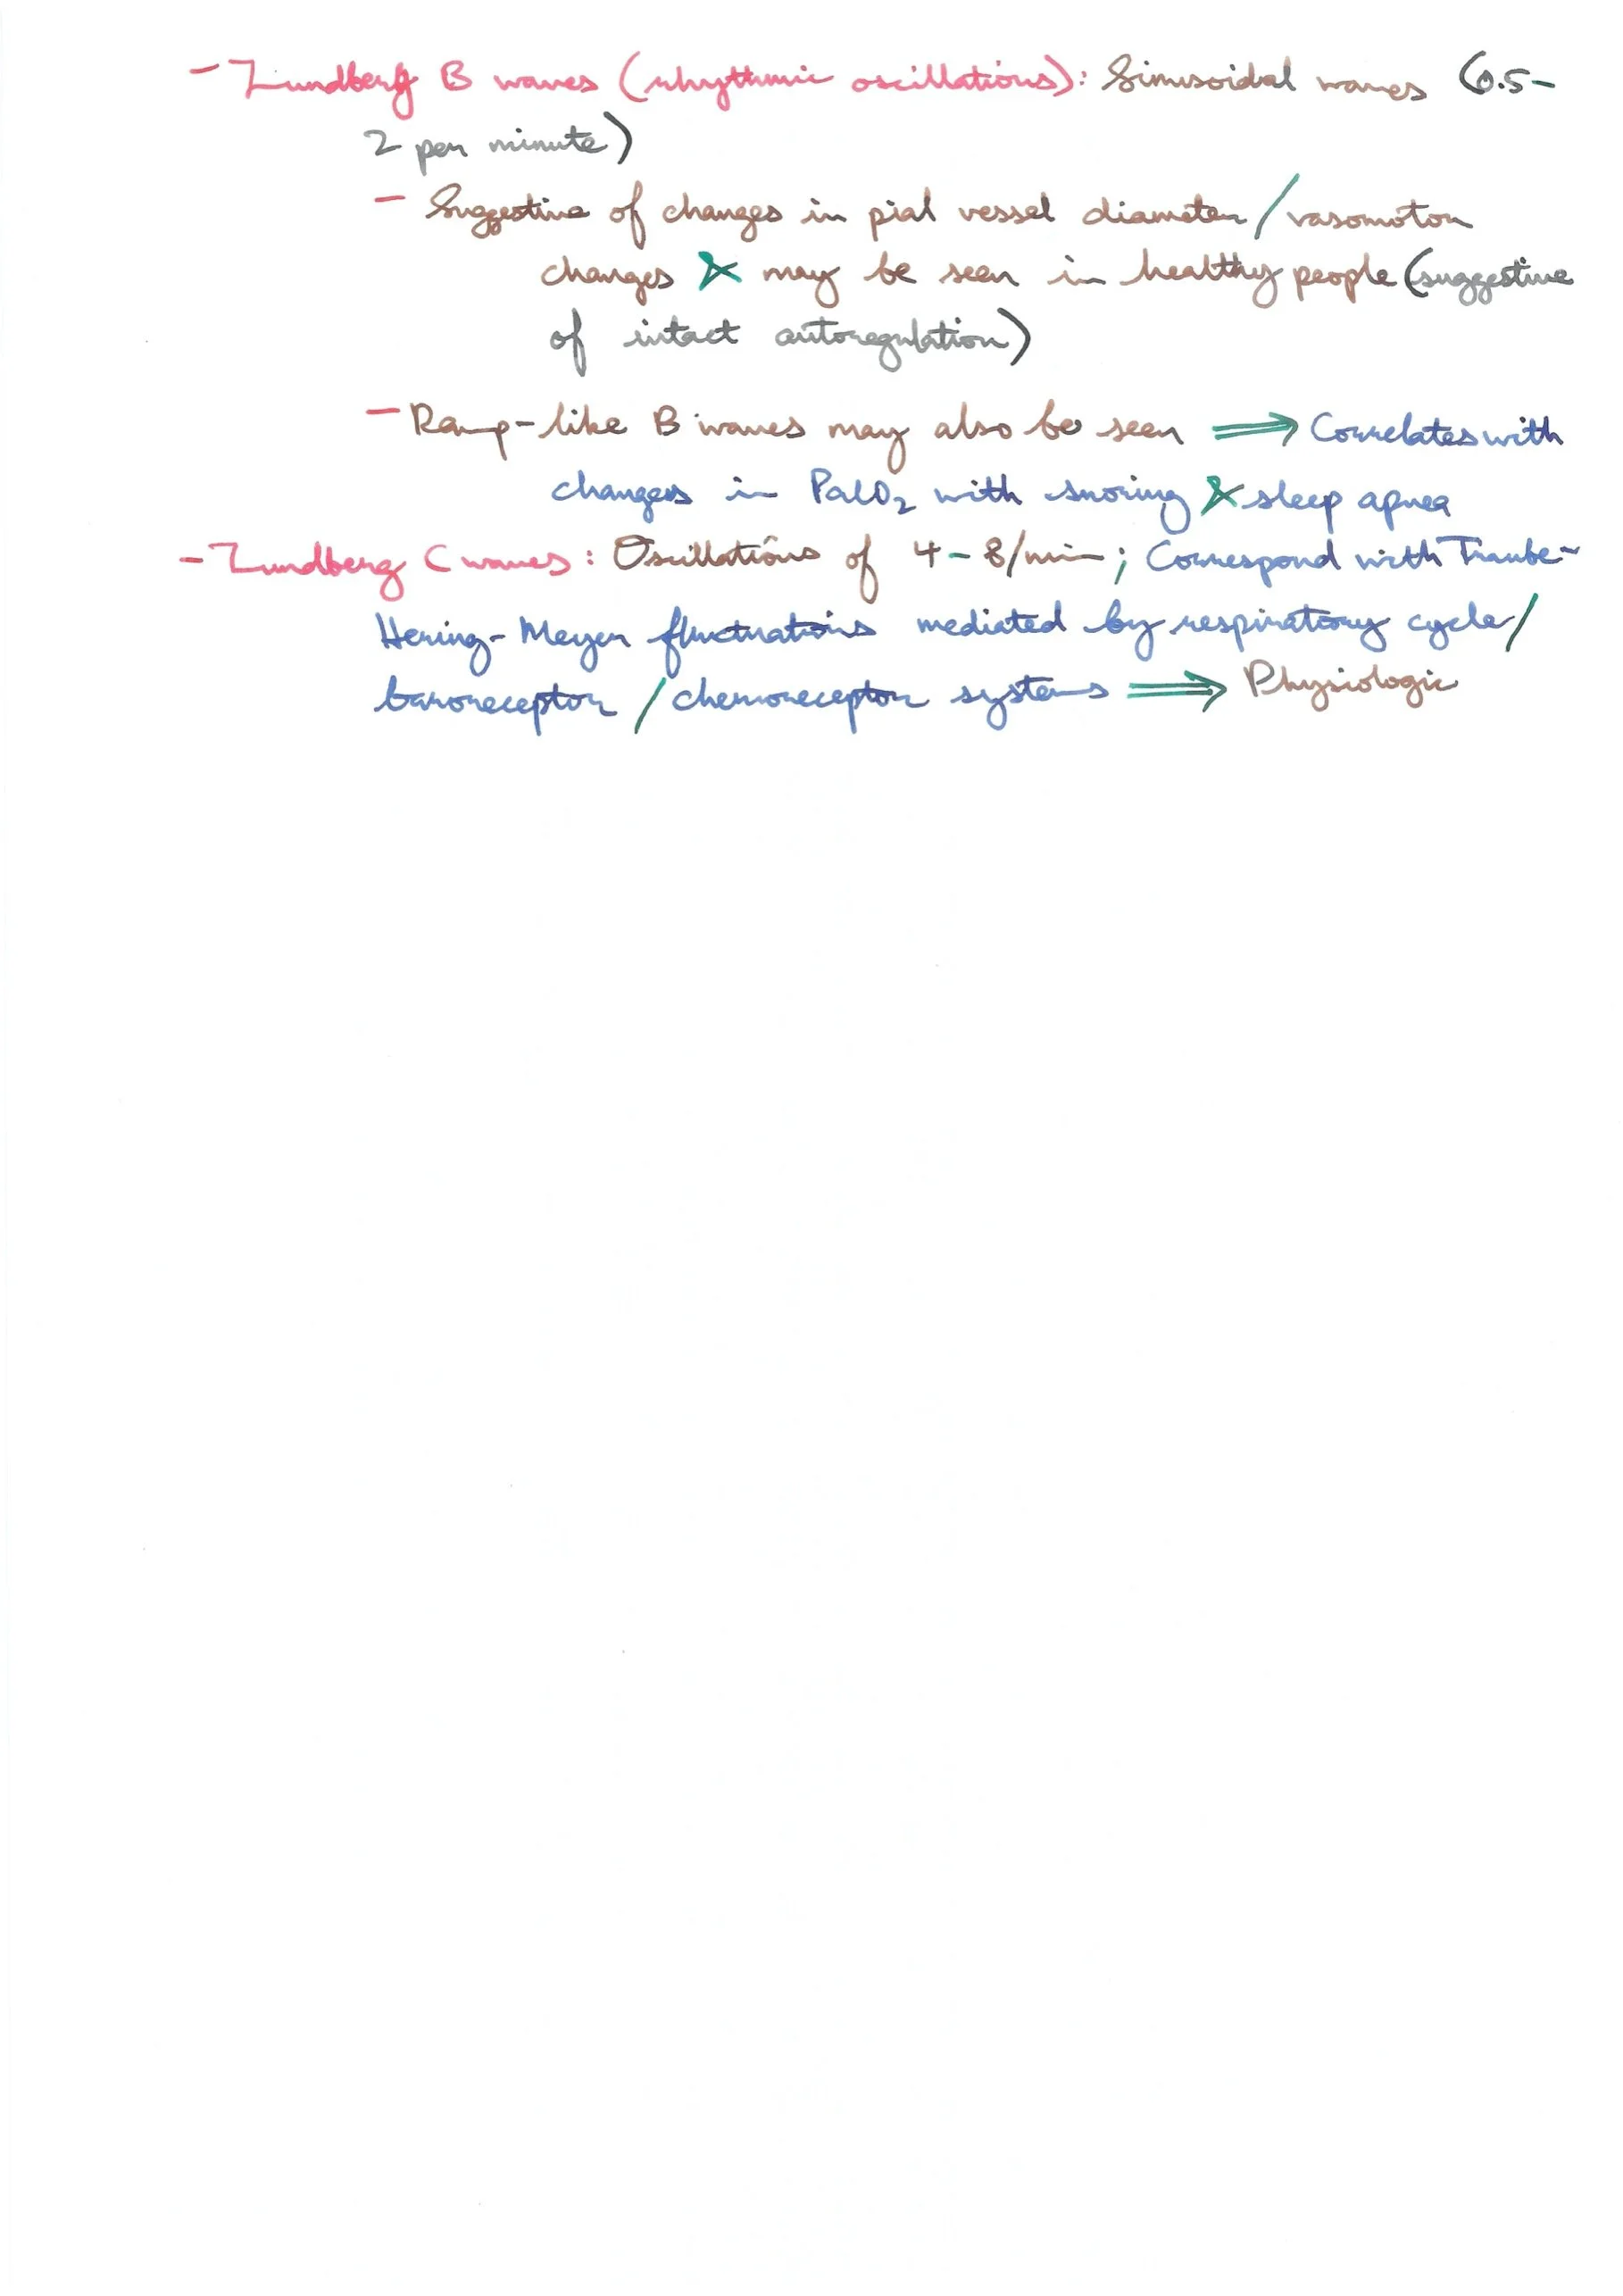 - Lundberg B waves (rhythmic oscillations): Sinusoidal waves (0.5-
2 per minute)
- Suggestive of changes in pial vessel diameter/vasomotor
changes & may be seen in healthy people (suggestive
of intact autoregulation)
- Ramp-like B waves may also be seen ⟹ Correlates with
changes in PaCO₂ with snoring & sleep apnea
- Lundberg C waves: Oscillations of 4-8/min; Correspond with Traube-
Hering-Meyer fluctuations mediated by respiratory cycle/
baroreceptor/chemoreceptor systems ⟹ Physiologic